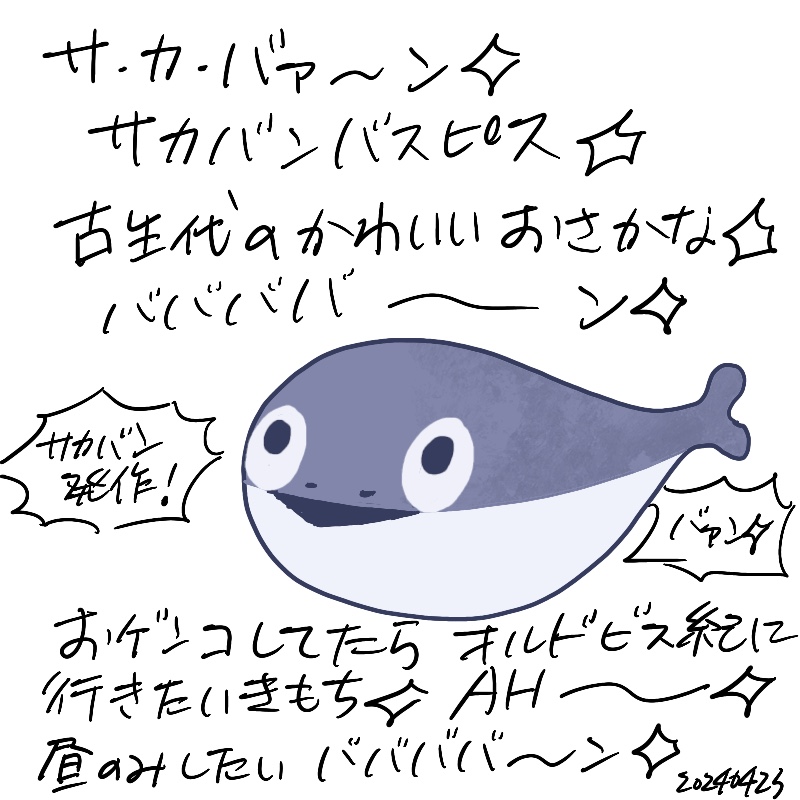 サ・カ・バァ〜ン
サカバンバスピス
古生代のかわいいおさかな
バババババ〜ン
サカバン
発作!
バァン
おゲンコしてたら オルドビス紀に
行きたいきもち AH〜
昼のみしたい ババババ〜ン
20240423